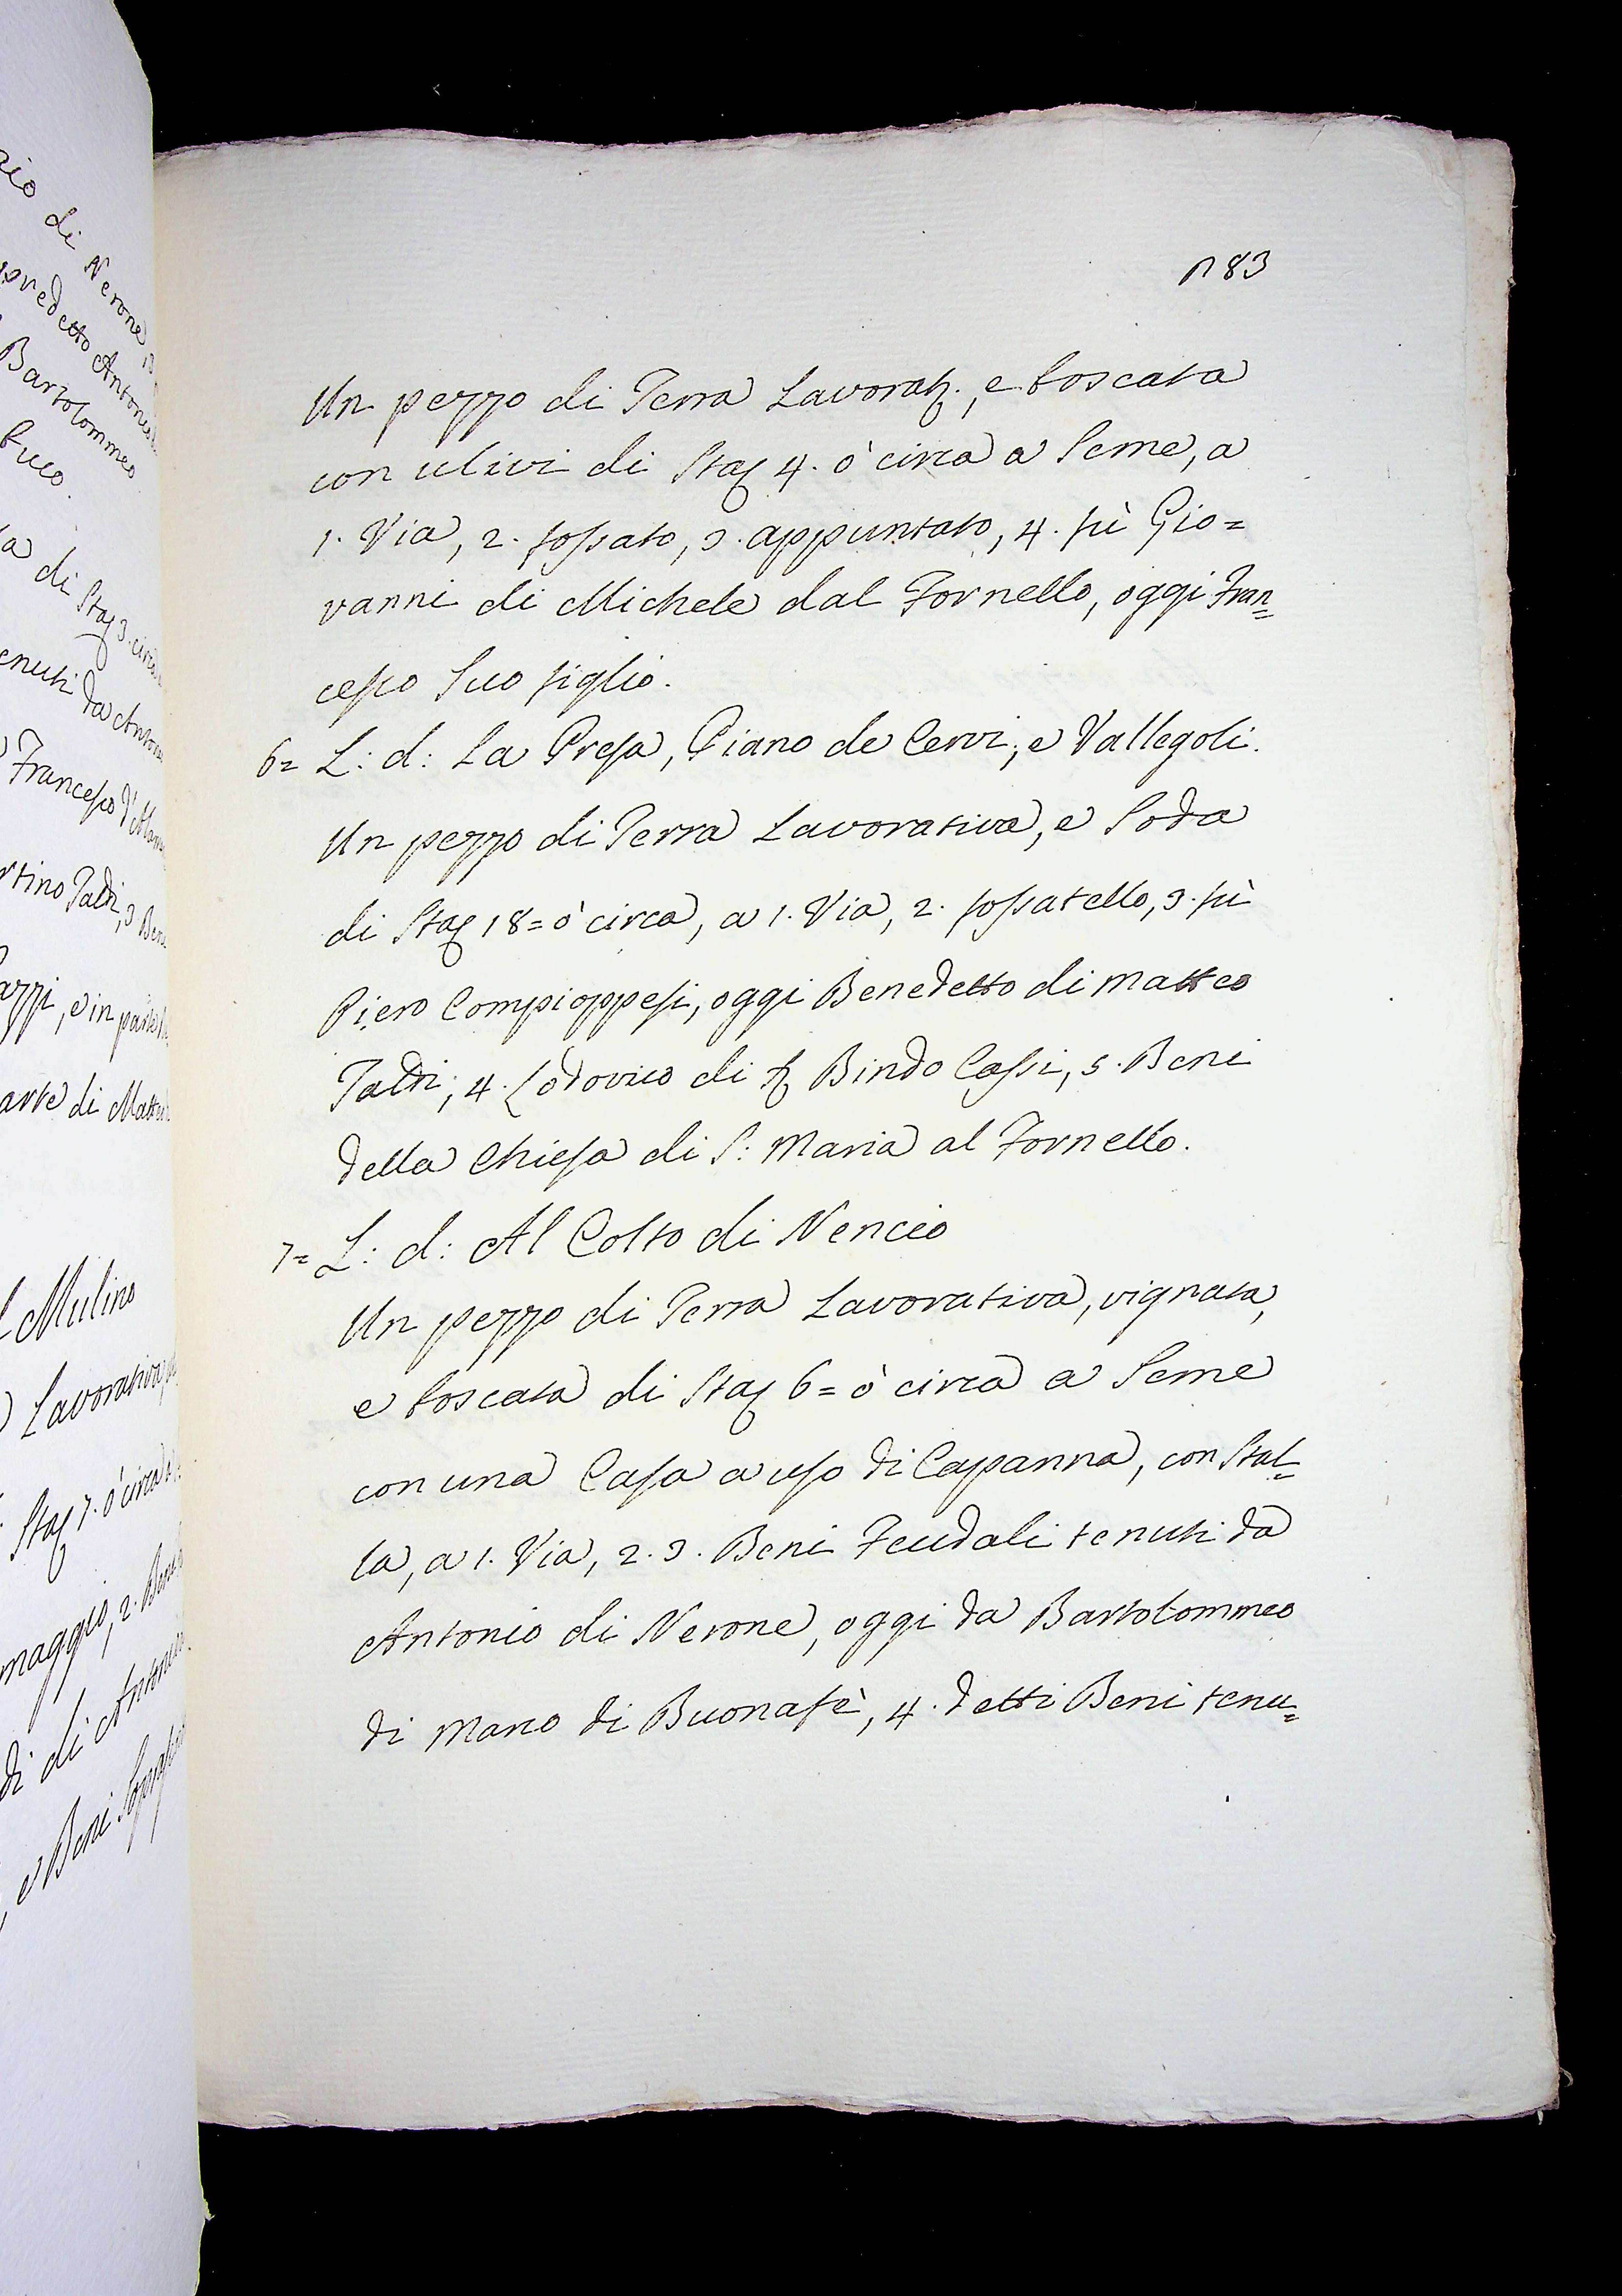 n 83
Un pezzo di Terra Lavorat., e boscata
con ulivi di Stai 4. ò circa a Seme, a
1. Via, 2. fossato, 3. appuntato, 4. fù Gio=
vanni di Michele dal Fornello, oggi Fran=
cesco Suo figlio.
6= L: d: La Presa, Piano de Cervi, e Vallegoli.
Un pezzo di Terra Lavorativa, e Soda
di Stai 18= ò circa, a 1. Via, 2. fossatello, 3. fù
Piero Compioppesi, oggi Benedetto di Matteo
Taddi; 4. Lodovico di Bindo Cassi, 5. Beni
della Chiesa di S: Maria al Fornello.
7= L: d: Al Colto di Nencio
Un pezzo di Terra Lavorativa, vignata,
e boscata di Stai 6= ò circa a Seme
con una Casa a uso di Capanna, con Stal=
la, a 1. Via, 2. 3. Beni Feudali tenuti da
Antonio di Nerone, oggi da Bartolommeo
di Marco di Buonafè, 4. detti Beni tenu=
di Nerone
Bartolommeo
buco.
a di Stai 3. circa
enuti da Anton
Francesco d'
rtino Taddi, 3 Beni
azzi, e in parte
arte di Matteo
l Mulino
Lavorativa,
Stai 7. ò circa
maggio, 2. Beni
di di Antonio
e Beni